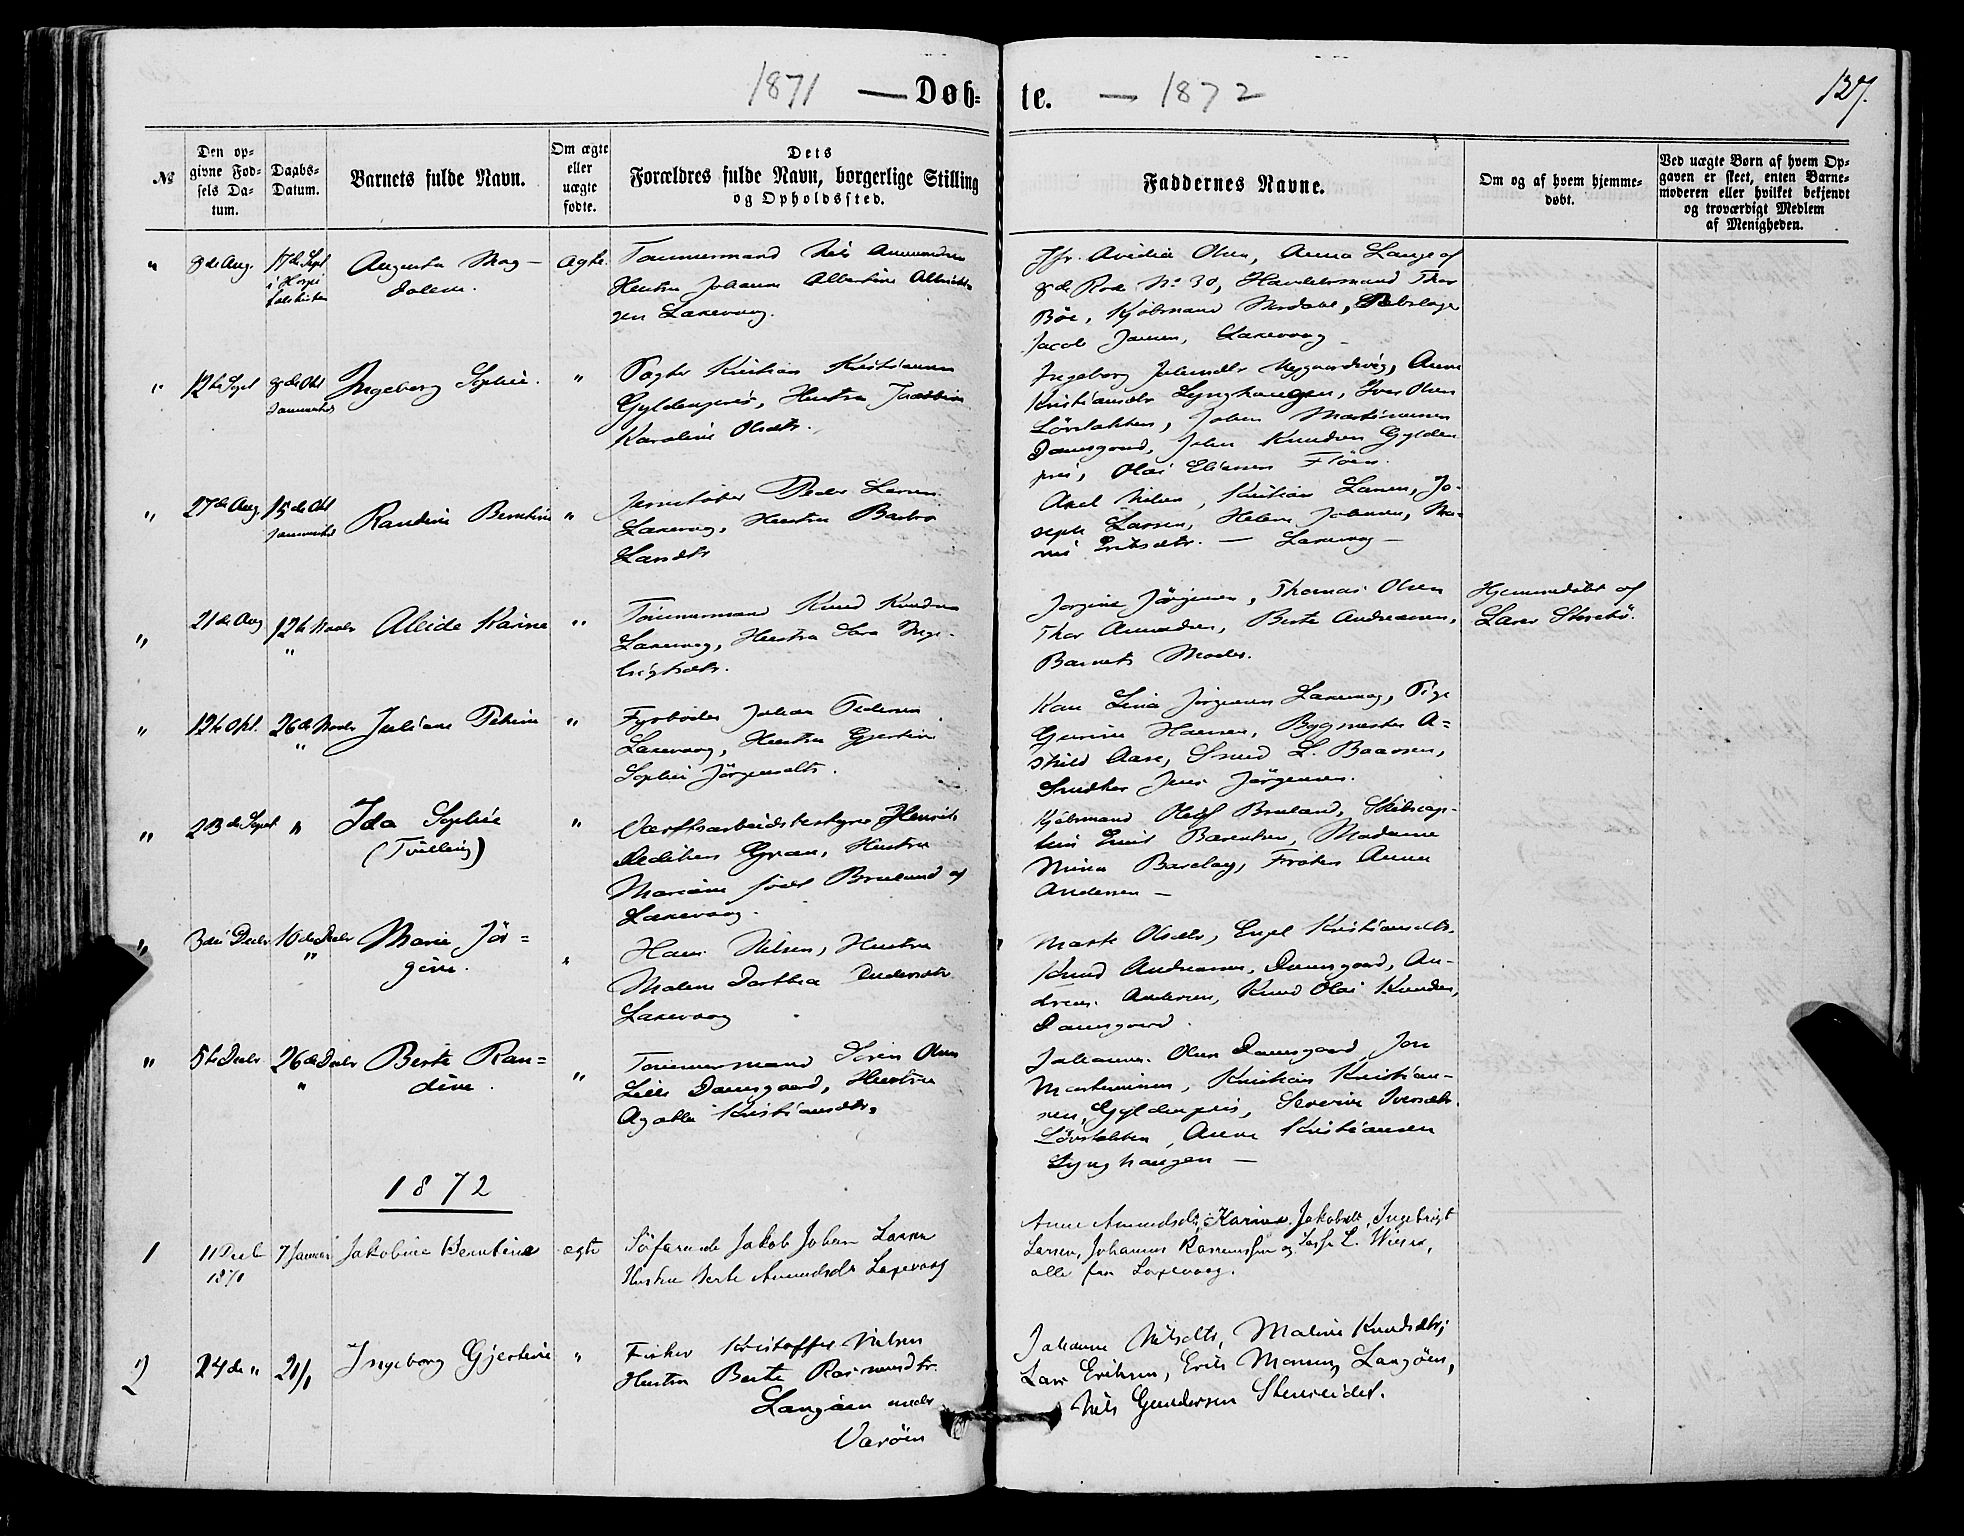 1871 — Døb-
te. — 1872
127.
№
Den op-
givne Fød-
sels Da-
tum.
Daabs-
Datum.
Barnets fulde Navn.
Om ægte
eller
uægte
fødte.
Dets
Forældres fulde Navn, borgerlige Stilling
og Opholdssted.
Faddernes Navne.
Om og af hvem hjemme-
døbt.
Ved uægte Børn af hvem Op-
gaven er skeet, enten Barne-
moderen eller hvilket bekjendt
og troværdigt Medlem
af Menigheden.
" 8de Aug. 17de Sept
Augusta Mag-
dalene.
ægte.
Tømmermand Nils
Hustru Johanne Albertine
sen Laxevaag.
Olsen, Anna Lange af
8de Rode No 30, Handelsmand Thor
Bøe, Kjøbmand
Jacob Jansen, Laxevaag
" 12te Sept 8de Okt
Ingeborg Sophie.
"
Kristian Kristiansen
Gyldenpris, Hustru
Karoline Olsdtr.
Ingeborg
Kristiansdtr Lynghaugen, Iver Olsen
Løvstakken, Johan Martinussen
Damsgaard, John Knudsen Gylden
pris, Olai Eliassen Fløen.
" 27de Aug 15de Okt
Randine Berntine
"
Peder Larsen
Laxevaag, Hustru
Larsdtr
Axel Nilsen, Kristian Larsen, Jo-
seph Larsen, Helene Johnsen, Ma-
rie Eriksdtr. — Laxevaag —
" 21de Aug 12te Novbr
"
Alida Karine
"
Tømmermand Knud Knudsen
Laxevaag, Hustru Sara Inge-
brigtsdtr.
Jørgine Jørgensen, Thomas Olsen
Thor Amundsen, Berte Andreassen,
Barnets Moder.
Hjemmedøbt af
Lars
" 12te Okt. 26de Novbr
"
Juliane Petrine
"
Fyrbøder Johan Pedersen
Laxevaag, Hustru Gjertine
Sophie Jørgensdtr.
Kone Lina Jørgensen Laxevaag, Pige
Gurine Hansen, Bygmester A-
skild Aase, Smed L. Baarsen,
Snedker Jens Jørgensen.
" 23de Sept "
Ida Sophie
(Tvilling)
"
Værftsarbeidsbestyrer Henrik
Gran, Hustru
Mariane født Bruland af
Laxevaag.
Kjøbmand Oluf Bruland, Skibscap-
tein Berentsen, Madame
Mina Barclay, Frøken Anna
Andersen —
" 3die Decbr 10de Decbr
"
Marie Jør-
gine.
"
Hans Nilsen, Hustru
Malene Dorthea
Laxevaag
Marte Olsdtr, Engel Kristiansdtr.
Knud Andreassen, Damsgaard, An-
dreas Andersen, Knud Olai Knudsen,
Damsgaard.
" 5te Decbr 26de Decbr
"
Berte Ran-
dine.
"
Tømmermand Sivin Olsen
Lille Damsgaard, Hustru
Agathe Kristiansdtr.
Johannes Olsen Damsgaard, Jon
Martinussen, Kristian Kristian-
sen, Gyldenpris, Severine Iversdtr.
Løvstakken, Anne Kristiansen
Lynghaugen —
1872
1 11 Decb 7 Januar
1871
Jakobine Berntine
ægte
Søfarende Jakob Johan Larsen
Hustru Berte Amundsdtr Laxevaag
Anne Amundsdtr, Karine Jakobsdt, Ingebrigt
Larsen, Johannes Rasmussen og L.
alle fra Laxevaag.
2) 24de " 21/1
Ingeborg Gjertine
"
Fisker Kristoffer Nilsen
Hustru Berte Rasmusdtr.
Langøen under
Varøen
Johanne Nilsdtr, Maline Knudsdtr,
Lars Eriksen, Erik Monsen, Langøen,
Nils Gundersen Steneidet.